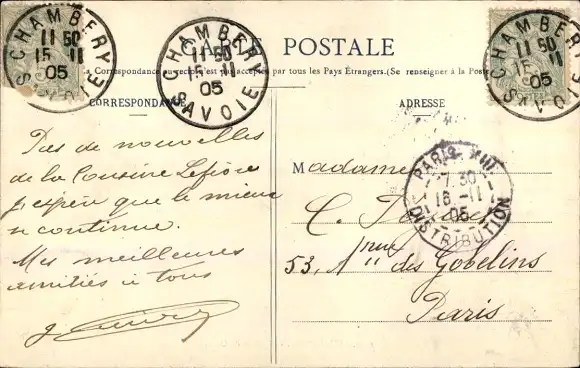 CARTE POSTALE
La Correspondance au recto n'est pas acceptée par tous les Pays Étrangers. (Se renseigner à la Poste
CORRESPONDANCE
ADRESSE
CHAMBERY
11 50
15 11
05
SAVOIE
CHAMBERY
11 50
15 11
05
SAVOIE
CHAMBERY
11 50
15 11
05
SAVOIE
Pas de nouvelles
de la Cousine
j'espère que le mieux
continue.
Mes meilleures
amitiés à tous
Madame
C.
53, rue des Gobelins
Paris
PARIS XIII
7 30
16 -11
05
DISTRIBUTION